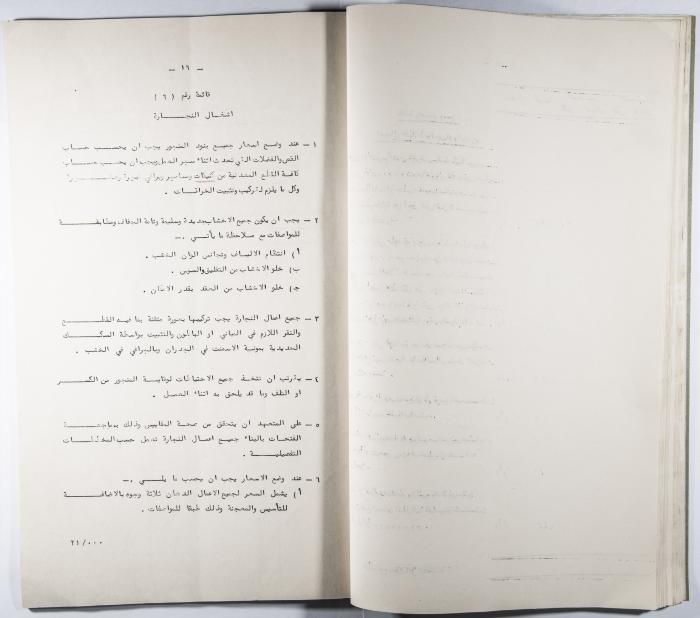 – ١٦ –
قائمة رقم ( ٦ )
اشغال النجـــارة
١ – عند وضع اسعار جميع بنود المنجور يجب ان يحسب حساب
القص والفضلات التي تحدث اثناء سير العمل ويجب ان يحسب حساب
كافة القطع المعدنية من كنيات ومسامير وبراغي
وكل ما يلزم لتركيب وتثبيت الخزانات .
٢ – يجب ان يكون جميع الاخشاب جديدة وسليمة وتامة الجفاف ومطابقة
للمواصفات مع ملاحظة ما يأتي .–
أ ) انتظام الالياف وتجانس الوان الخشب .
ب) خلو الاخشاب من التفليق والسوس .
ج) خلو الاخشاب من العقد بقدر الامكان .
٣ – جميع اعمال النجارة يجب تركيبها بصورة متقنة بما فيه القطع
والنقر اللازم في المباني او الباطون والتثبيت بواسطة السكك
الحديدية بمونة الاسمنت في الجدران وبالبراغي في الخشب .
٤ – يترتب ان تتخذ جميع الاحتياطات لوقاية المنجور من الكسر
او التلف وما قد يلحق به اثناء العمل .
٥ – على المتعهد ان يتحقق من صحة المقاييس وذلك بمراجعة
الفتحات بالبناء جميع اعمال النجارة تعمل حسب المخططات
التفصيلية .
٦ – عند وضع الاسعار يجب ان يحسب ما يلي .–
أ ) يشمل السعر لجميع الاعمال الدهان ثلاثة وجوه بالاضافة
للتأسيس والمعجنة وذلك طبقا للمواصفات .
٢١/٠٠٠